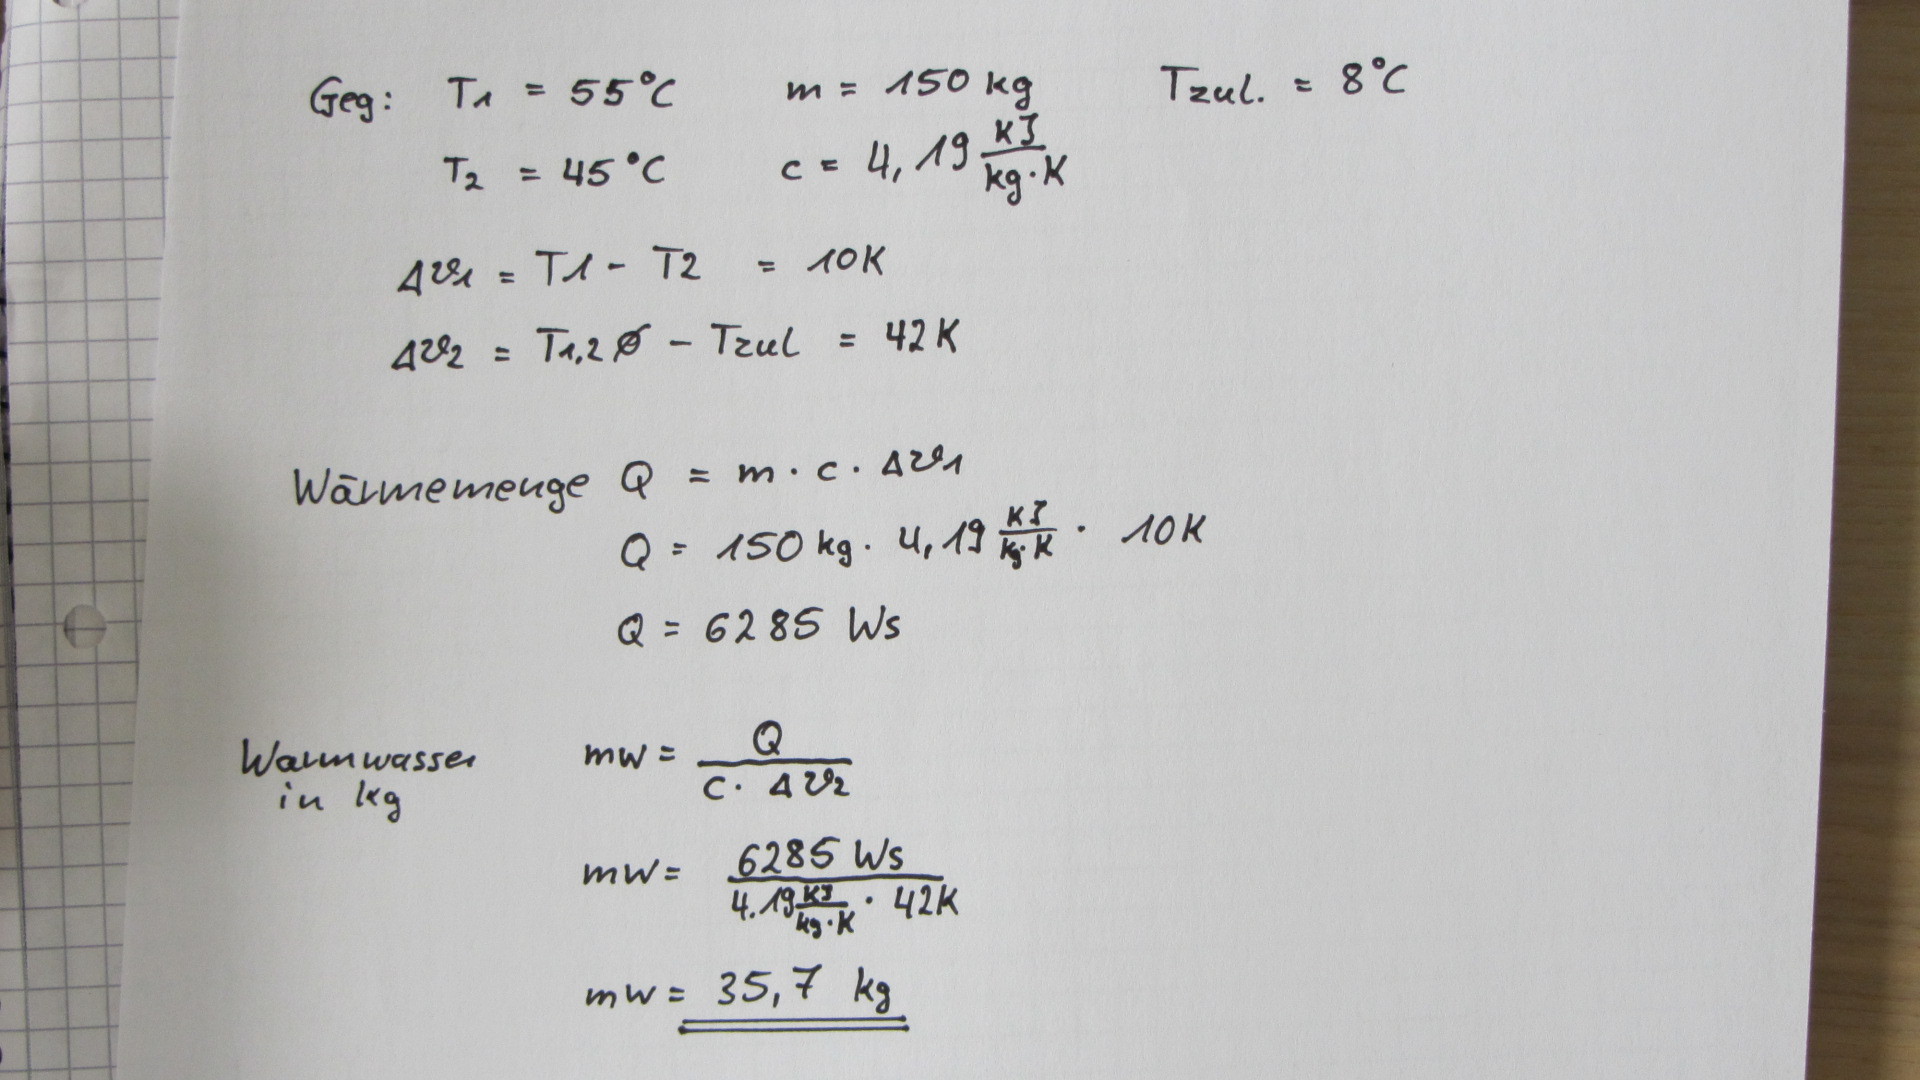 Geg: T1 = 55°C m = 150 kg Tzul. = 8°C
T2 = 45°C c = 4,19 kJ/kg·K
Δϑ1 = T1 - T2 = 10K
Δϑ2 = T1,2 ø - Tzul = 42K
Wärmemenge Q = m · c · Δϑ1
Q = 150 kg · 4,19 kJ/kg·K · 10K
Q = 6285 Ws
Warmwasser in kg mw = Q / c · Δϑ2
mw = 6285 Ws / 4.19 kJ/kg·K · 42K
mw = 35,7 kg